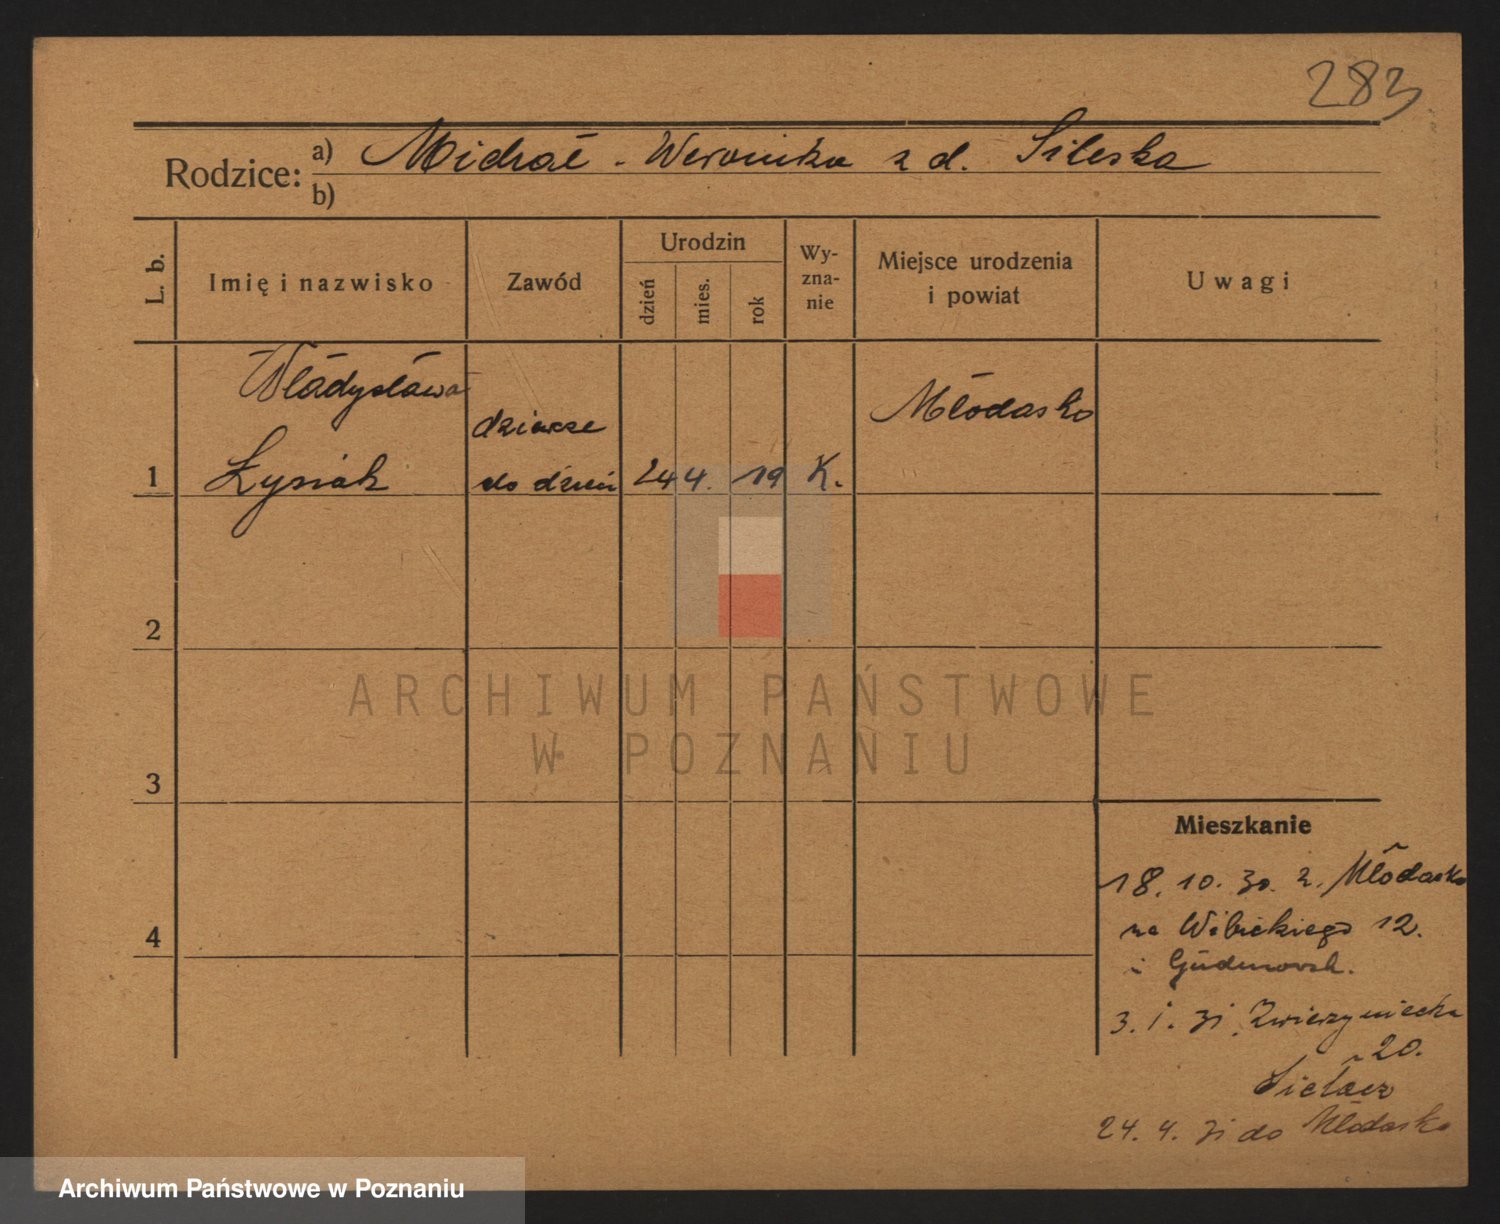 283
Rodzice: a) Michał - Weronika z d. Sileska
b)
L. b.
Imię i nazwisko
Zawód
Urodzin
dzień
mies.
rok
Wy-
zna-
nie
Miejsce urodzenia
i powiat
Uwagi
Władysława
dziewcze
Młodasko
1 Łysiak do dzieci 24 4. 19 K.
2
ARCHIWUM PAŃSTWOWE
W POZNANIU
3
Mieszkanie
18. 10. 30. z. Młodasko
4
na Wibickiego 12.
i
3. 1. 31. Zwierzyniecka
20.
24. 4. 31 do Młodasko
Archiwum Państwowe w Poznaniu